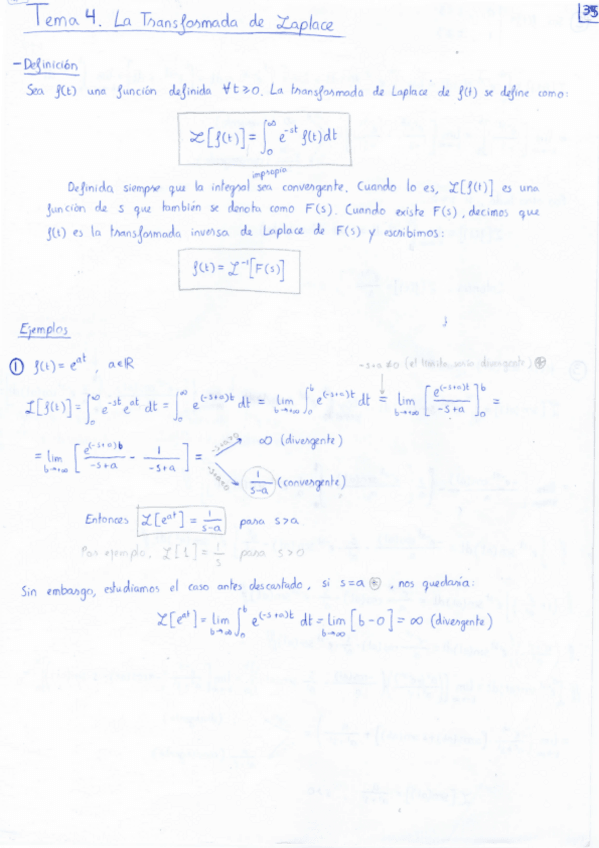 Tema 4. La Transformada de Laplace
35
- Definición
Sea f(t) una función definida ∀t≥0. La transformada de Laplace de f(t) se define como:
ℒ[f(t)] = ∫₀^∞ e^(-st) f(t)dt
impropia
Definida siempre que la integral sea convergente. Cuando lo es, ℒ[f(t)] es una
función de s que también se denota como F(s). Cuando existe F(s), decimos que
f(t) es la transformada inversa de Laplace de F(s) y escribimos:
f(t) = ℒ⁻¹[F(s)]
Ejemplos
① f(t) = e^(at), a∈ℝ
-s+a ≠0 (el límite sería divergente) ⊕
ℒ[f(t)] = ∫₀^∞ e^(-st) e^(at) dt = ∫₀^∞ e^((-s+a)t) dt = lim b→+∞ ∫₀^b e^((-s+a)t) dt = lim b→+∞ [e^((-s+a)t)/(-s+a)]₀^b =
= lim b→+∞ [e^((-s+a)b)/(-s+a) - 1/(-s+a)] = -s+a>0 ∞ (divergente)
-s+a<0 1/(s-a) (convergente)
Entonces ℒ[e^(at)] = 1/(s-a) para s>a
Por ejemplo, ℒ[1] = 1/s para s>0
Sin embargo, estudiamos el caso antes descartado, si s=a ⊕, nos quedaría:
ℒ[e^(at)] = lim b→∞ ∫₀^b e^((-s+a)t) dt = lim b→∞ [b-0] = ∞ (divergente)